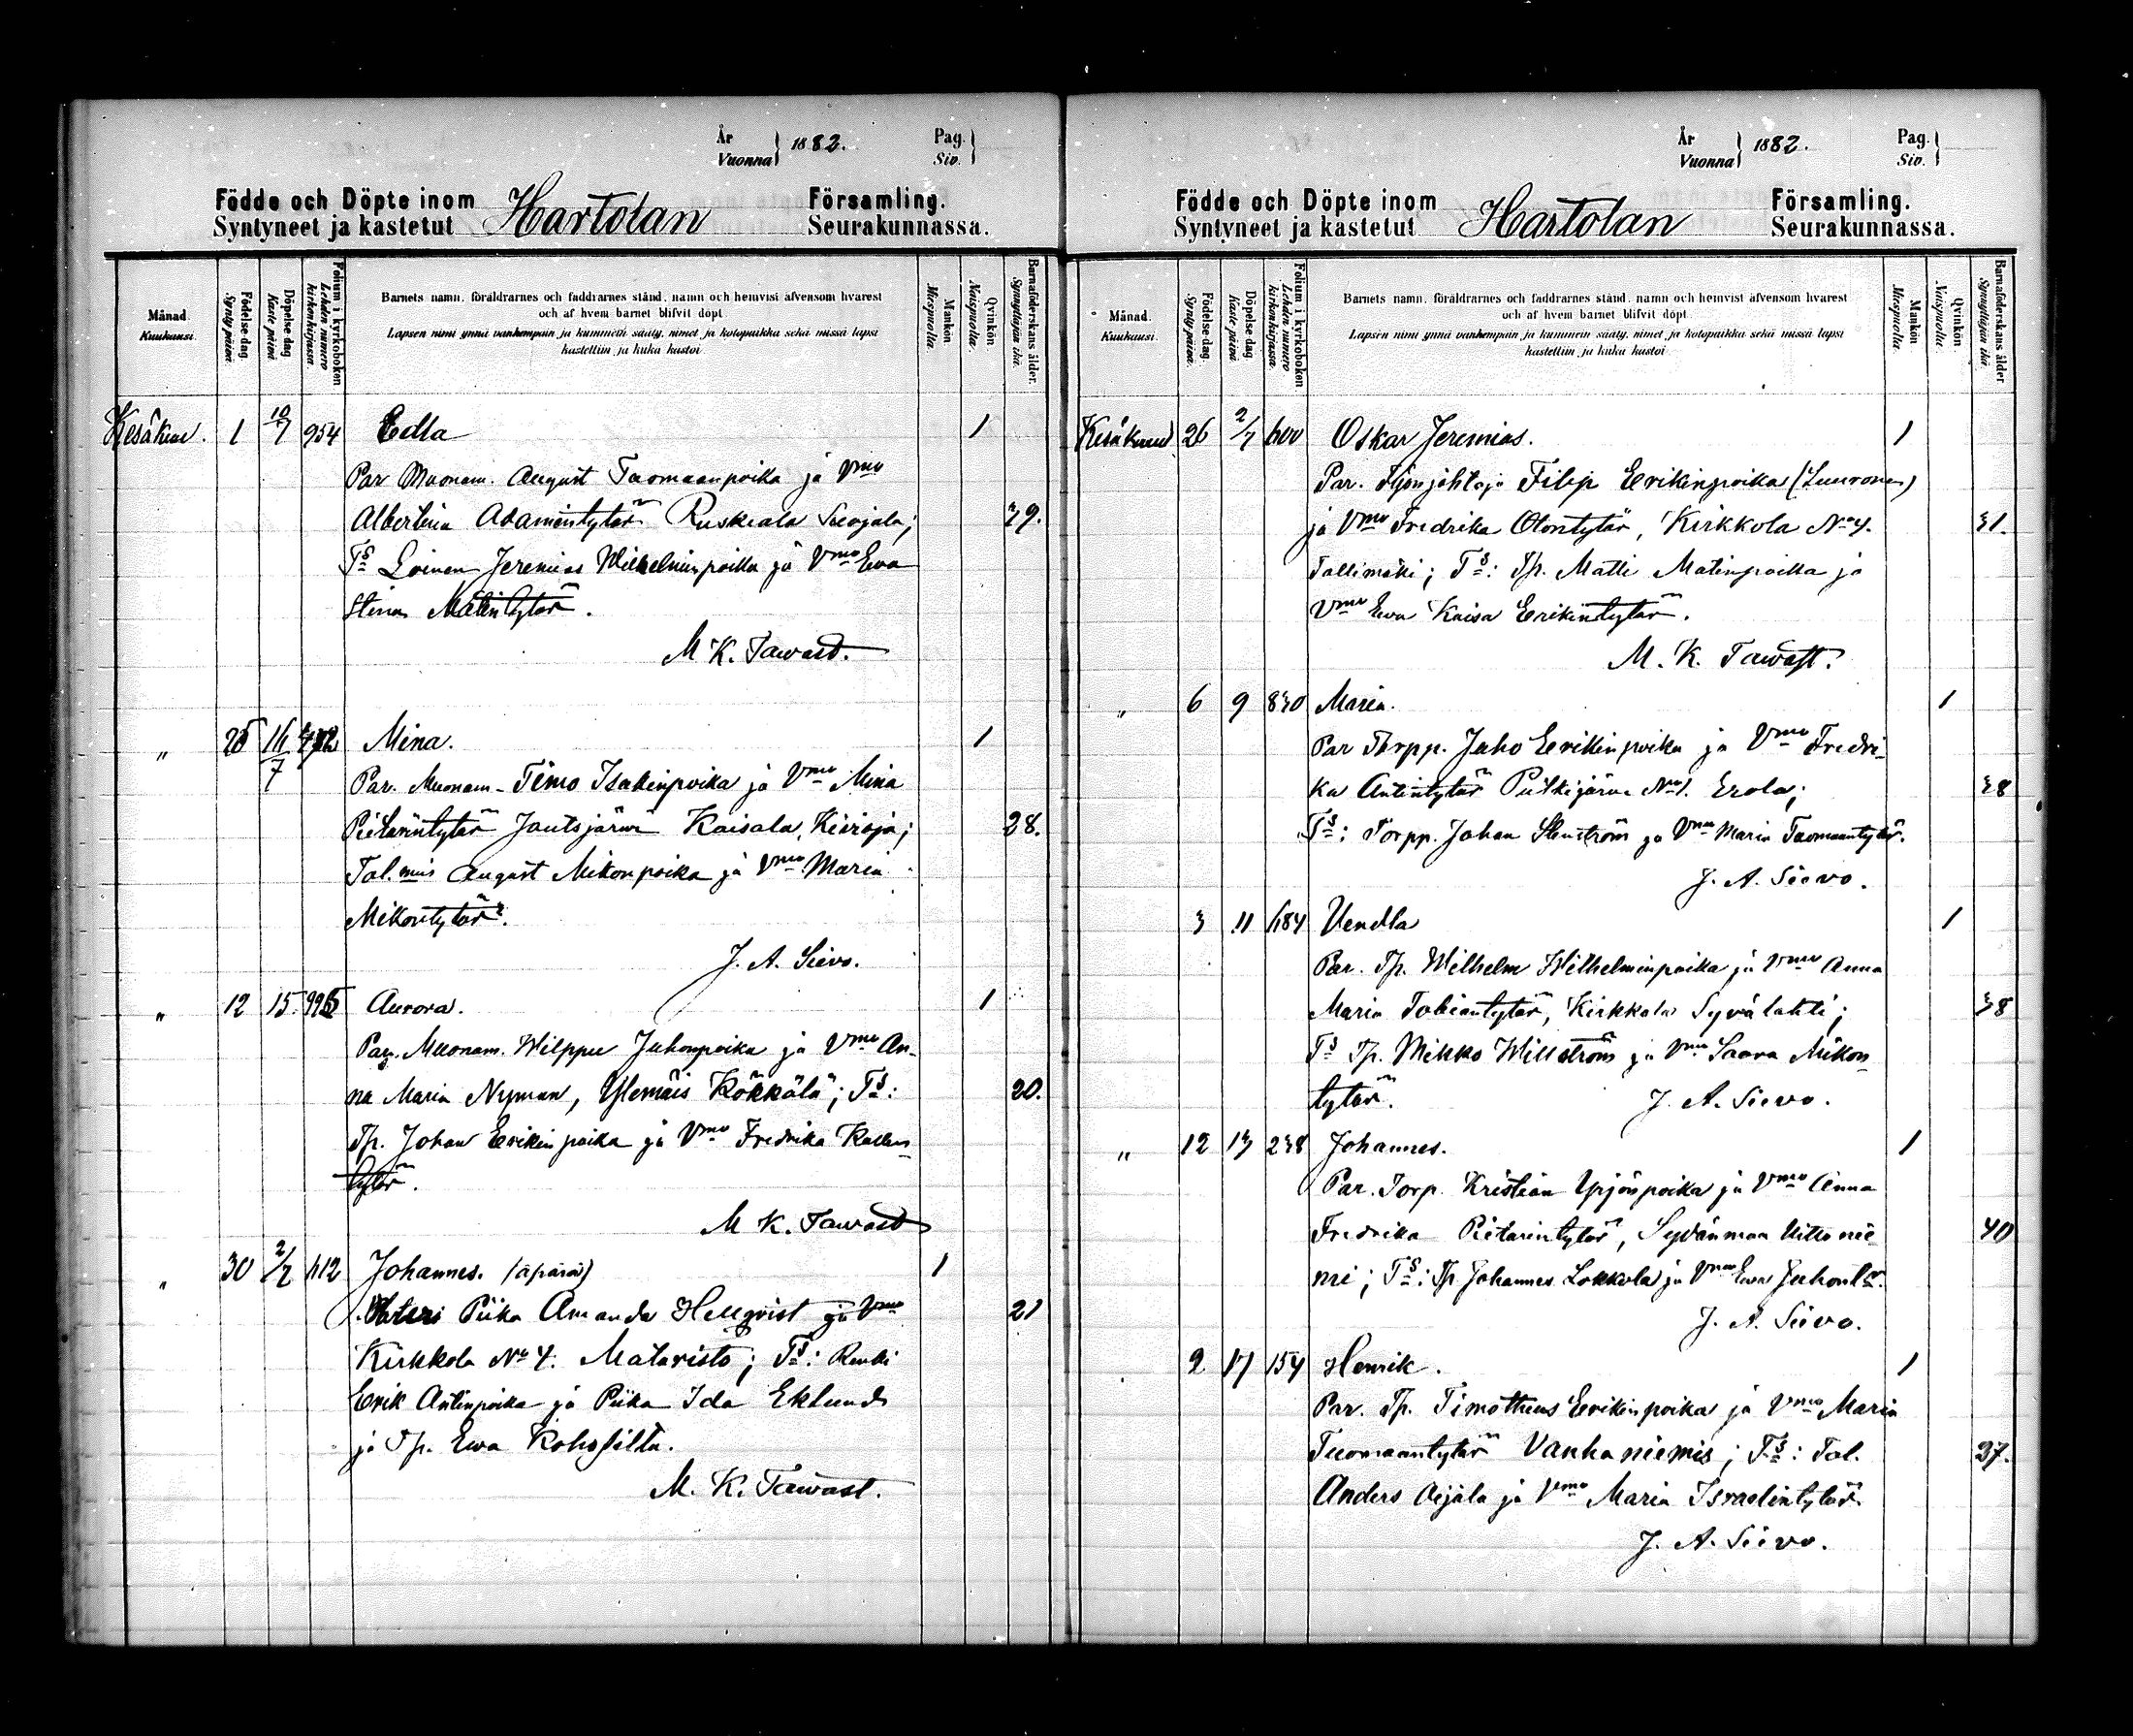 År
Vuonna } 1882. Pag.
Siv.
Födde och Döpte inom Hartolan Församling.
Syntyneet ja kastetut Seurakunnassa.
Månad.
Kuukausi.
Födelse dag
Synty päivä.
Döpelse dag
Kaste päivä
Folium i kyrkoboken
Lehden numero kirkonkirjassa.
Barnets namn, föräldrarnes och faddrarnes stånd, namn och hemvist äfvensom hvarest
och af hvem barnet blifvit döpt
Lapsen nimi ynnä vanhempain ja kummein sääty, nimet ja kotopaikka sekä missä lapsi
kastettiin ja kuka kastoi
Mankön
Miespuolia.
Qvinkön.
Naispuolia.
Barnaföderskans ålder.
Synnyttäjän ikä.
Kesäkuu. 1 10/7 954 Edla 1
Par Muonam. August Tuomaanpoika ja Vmo
Albertina Adamintytär Ruskeala Suojala; 29.
Ts Loinen Jeremias Wilhelminpoika ja Vmo Ewa
Stina Matintytär.
M K. Tawast.
" 25 16/7 Mina. 1
Par. Muonam. Timo Isakinpoika ja Vmo Mina
Pietarintytär Jautsjärwi Kaisala, Kivioja; 28.
Tal. mies August Mikonpoika ja Vmo Maria
Mikontytär.
J. A. Sievo.
" 12 15. 995 Aurora. 1
Par. Muonam. Wilppu Juhonpoika ja Vmo An-
na Maria Nyman, Ylemäis Kökkälä; Ts: 20.
Tp. Johan Erikinpoika ja Vmo Fredrika Kallen-
tytär.
M K. Tawast
" 30 2/7 612 Johannes. (äpärä) 1
Piika Amanda Hellqvist ja Vmo 21
Kirkkola No 4. Mataristo; Ts: Renki
Erik Antinpoika ja Piika Ida Eklund
ja Tp. Ewa Kohosilta.
M. K. Tawast.
År
Vuonna } 1882. Pag.
Siv.
Födde och Döpte inom Hartolan Församling.
Syntyneet ja kastetut Seurakunnassa.
Månad.
Kuukausi.
Födelse dag
Synty päivä.
Döpelse dag
Kaste päivä
Folium i kyrkoboken
Lehden numero kirkonkirjassa.
Barnets namn, föräldrarnes och faddrarnes stånd, namn och hemvist äfvensom hvarest
och af hvem barnet blifvit döpt.
Lapsen nimi ynnä vanhempain ja kummein sääty, nimet ja kotopaikka sekä missä lapsi
kastettiin ja kuka kastoi
Mankön
Miespuolia.
Qvinkön.
Naispuolia.
Barnaföderskans ålder
Synnyttäjän ikä.
Kesäkuu 26 2/7 600 Oskar Jeremias. 1
Par. Työnjohtaja Filip Eerikinpoika (Luuronen)
ja Vmo Fredrika Otontytär, Kirkkola No 4. 31.
Tallimäki; Ts: Tp. Matti Matinpoika ja
Vmo Ewa Kaisa Erikintytär.
M. K. Tawast.
" 6 9 830 Maria. 1
Par Torpp. Juho Eerikinpoika ja Vmo Fredri-
ka Antintytär Putkijärvi No 1. Erola; 38
Ts: Torpp. Johan Stenström ja Vmo Maria Tuomaantytär.
J. A. Sievo.
3 11 684 Vendla 1
Par. Tp. Wilhelm Wilhelminpoika ja Vmo Anna
Maria Tobiantytär, Kirkkola Syvälahti; 38
Ts Tp. Mikko Willström ja Vmo Saara Mikon-
tytär. J. A. Sievo.
" 12 13 238 Johannes. 1
Par. Torp. Kristian Yrjönpoika ja Vmo Anna
Fredrika Pietarintytär, Sydänmaa Uittonie- 40
mi; Ts: Tp. Johannes Lokkola ja Vmo Ewa Juhont.
J. A. Sievo.
9 17 154 Henrik. 1
Par. Tp. Timotheus Eerikinpoika ja Vmo Maria
Tuomaantytär Vanhaniemis; Ts: Tal. 37.
Anders Oijala ja Vmo Maria Israelintytär
J. A. Sievo.